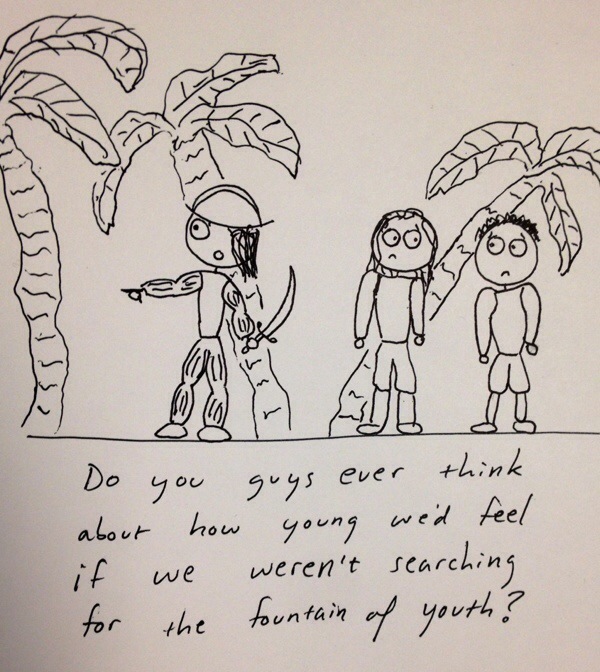 Do you guys ever think
about how young we'd feel
if we weren't searching
for the fountain of youth?